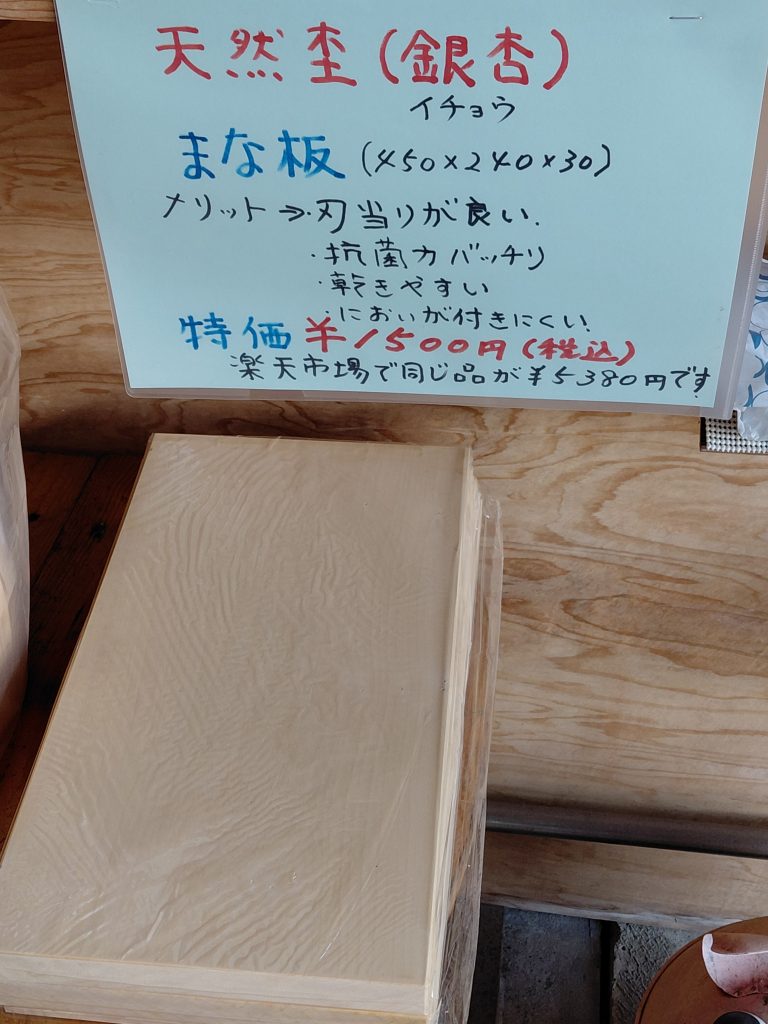 天然杢(銀杏)
イチョウ
まな板(450×240×30)
メリット⇒・刃当りが良い.
・抗菌力バッチリ
・乾きやすい
・においが付きにくい.
特価¥1500円(税込)
楽天市場で同じ品が¥5380円です